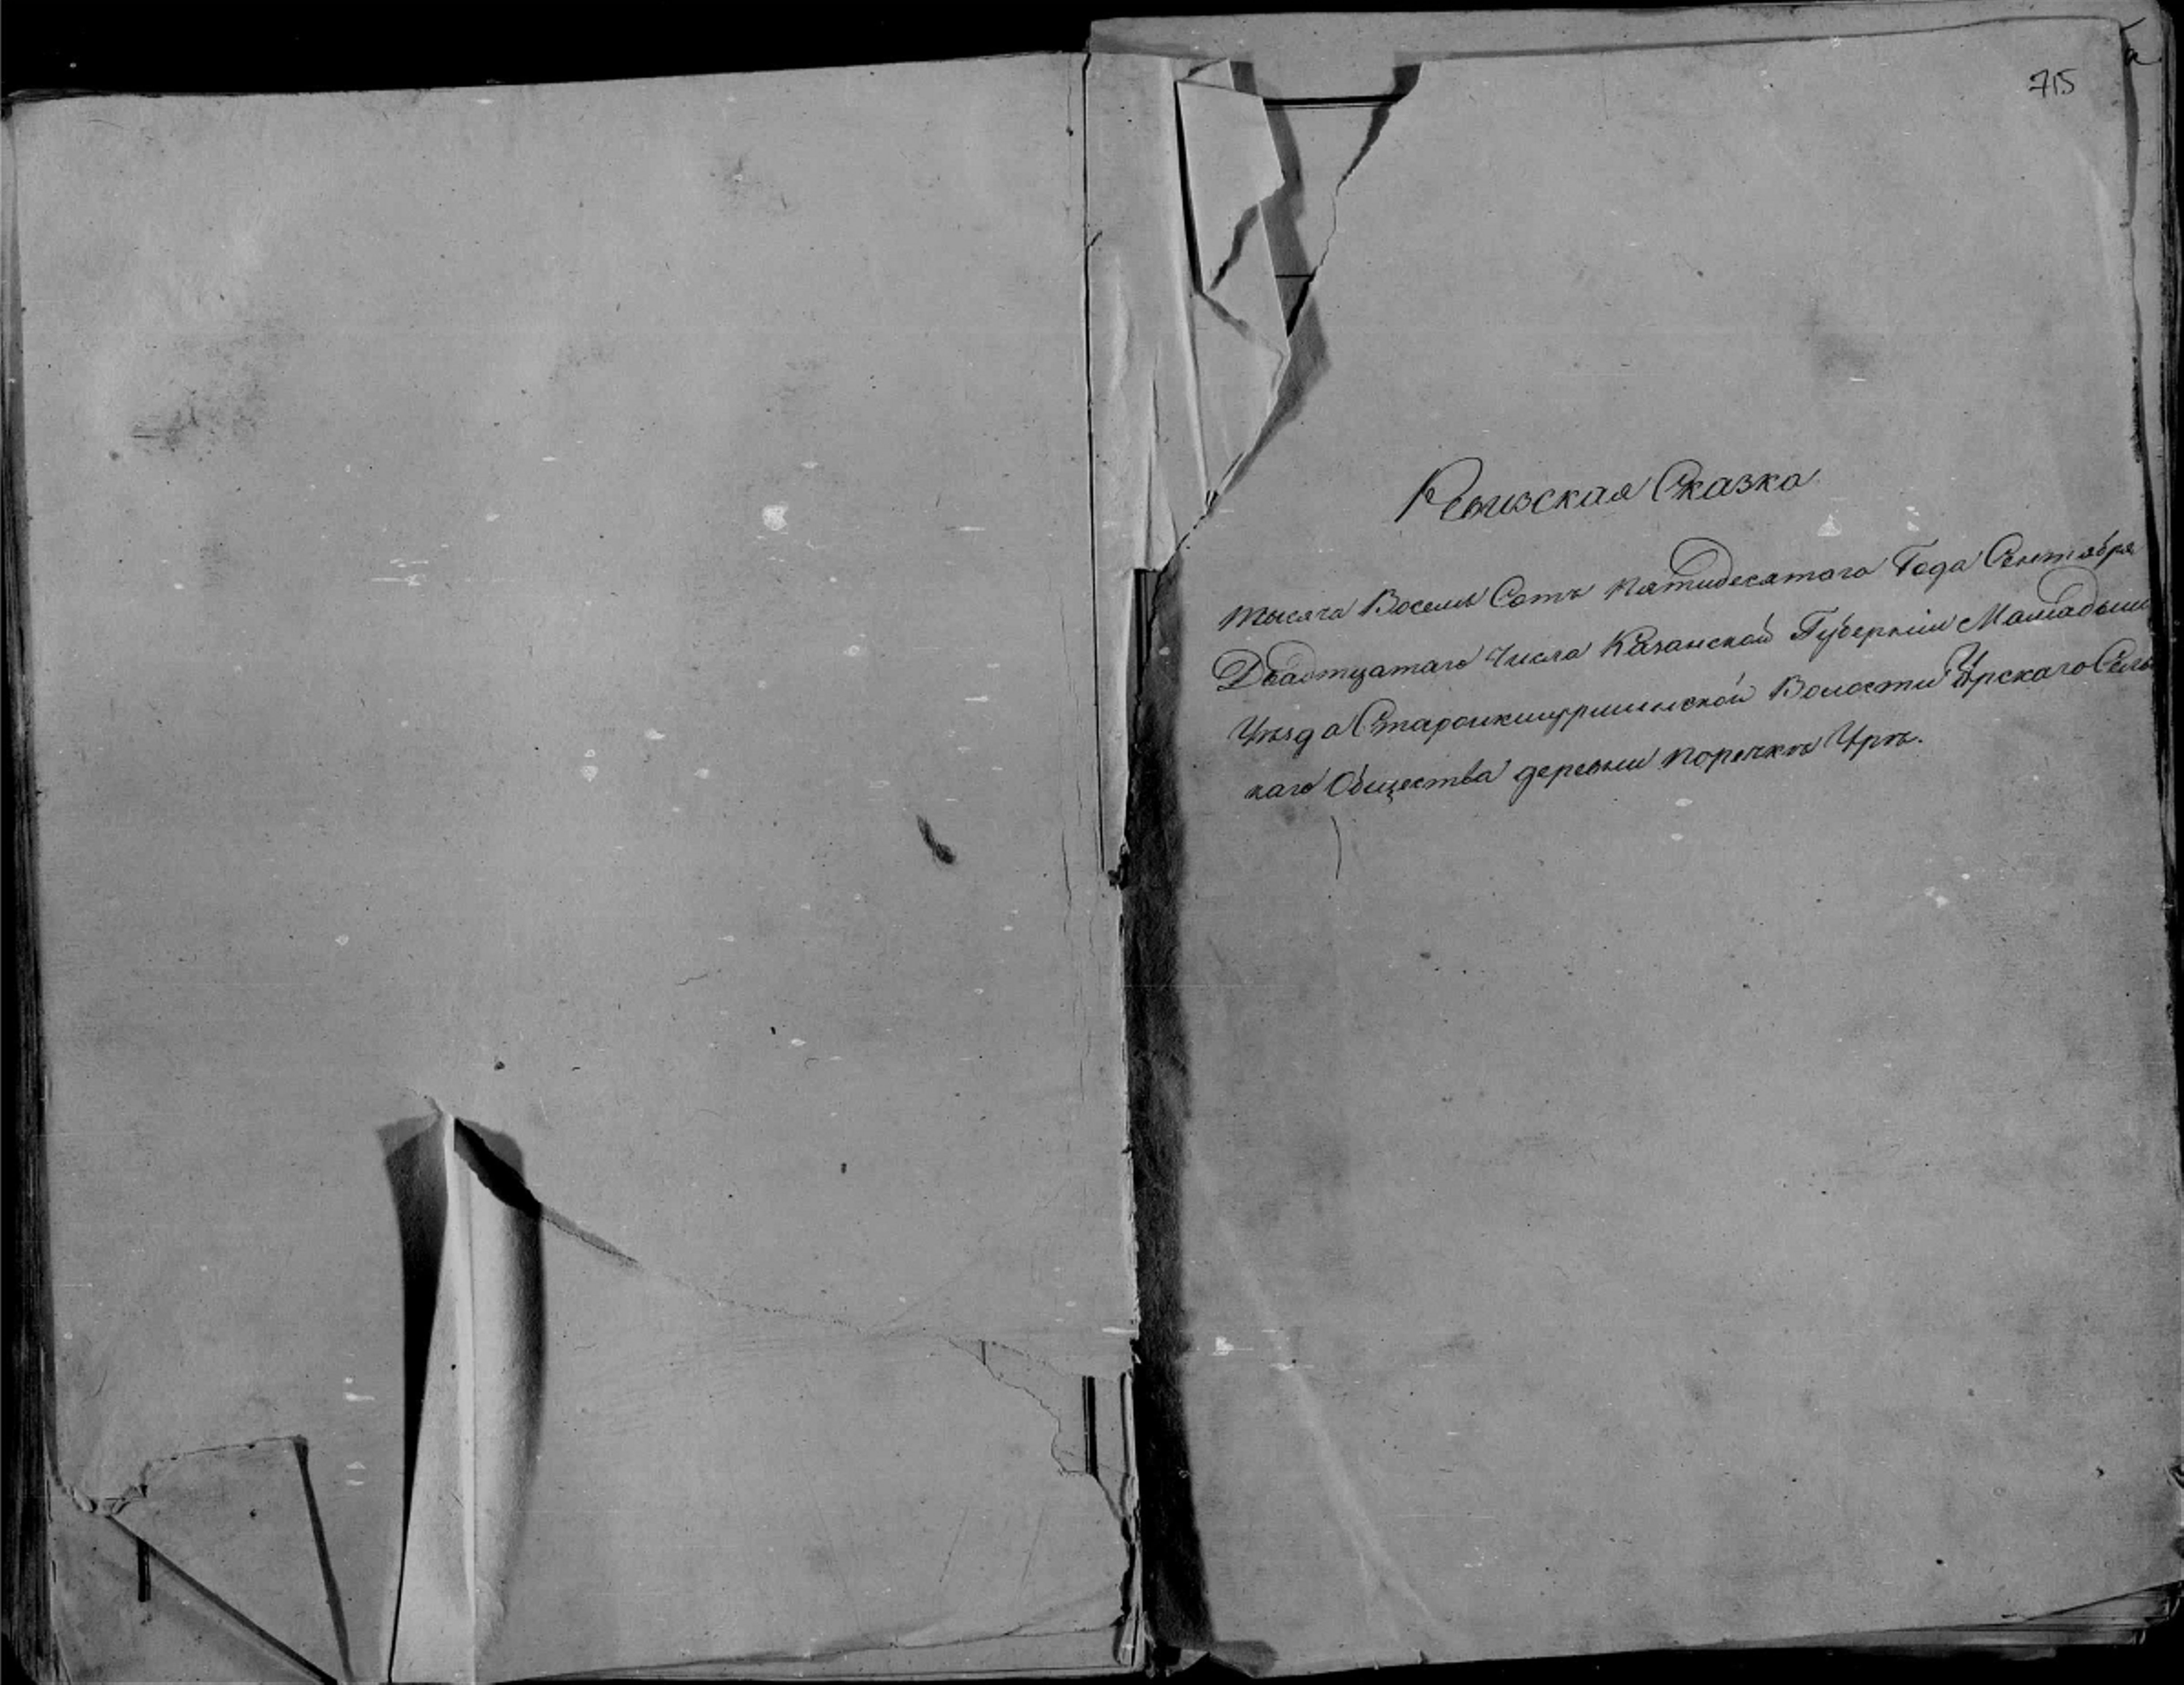 715
Ревизская Сказка
Тысяча Восемь Сотъ пятидесятого Года Сентября
Двадтцатаго Числа Казанской Губерніи Мамадыш
Уѣзда Староикшурминской Волости Урскаго Сель
каго Общества деревни поречкѣ Урѣ.